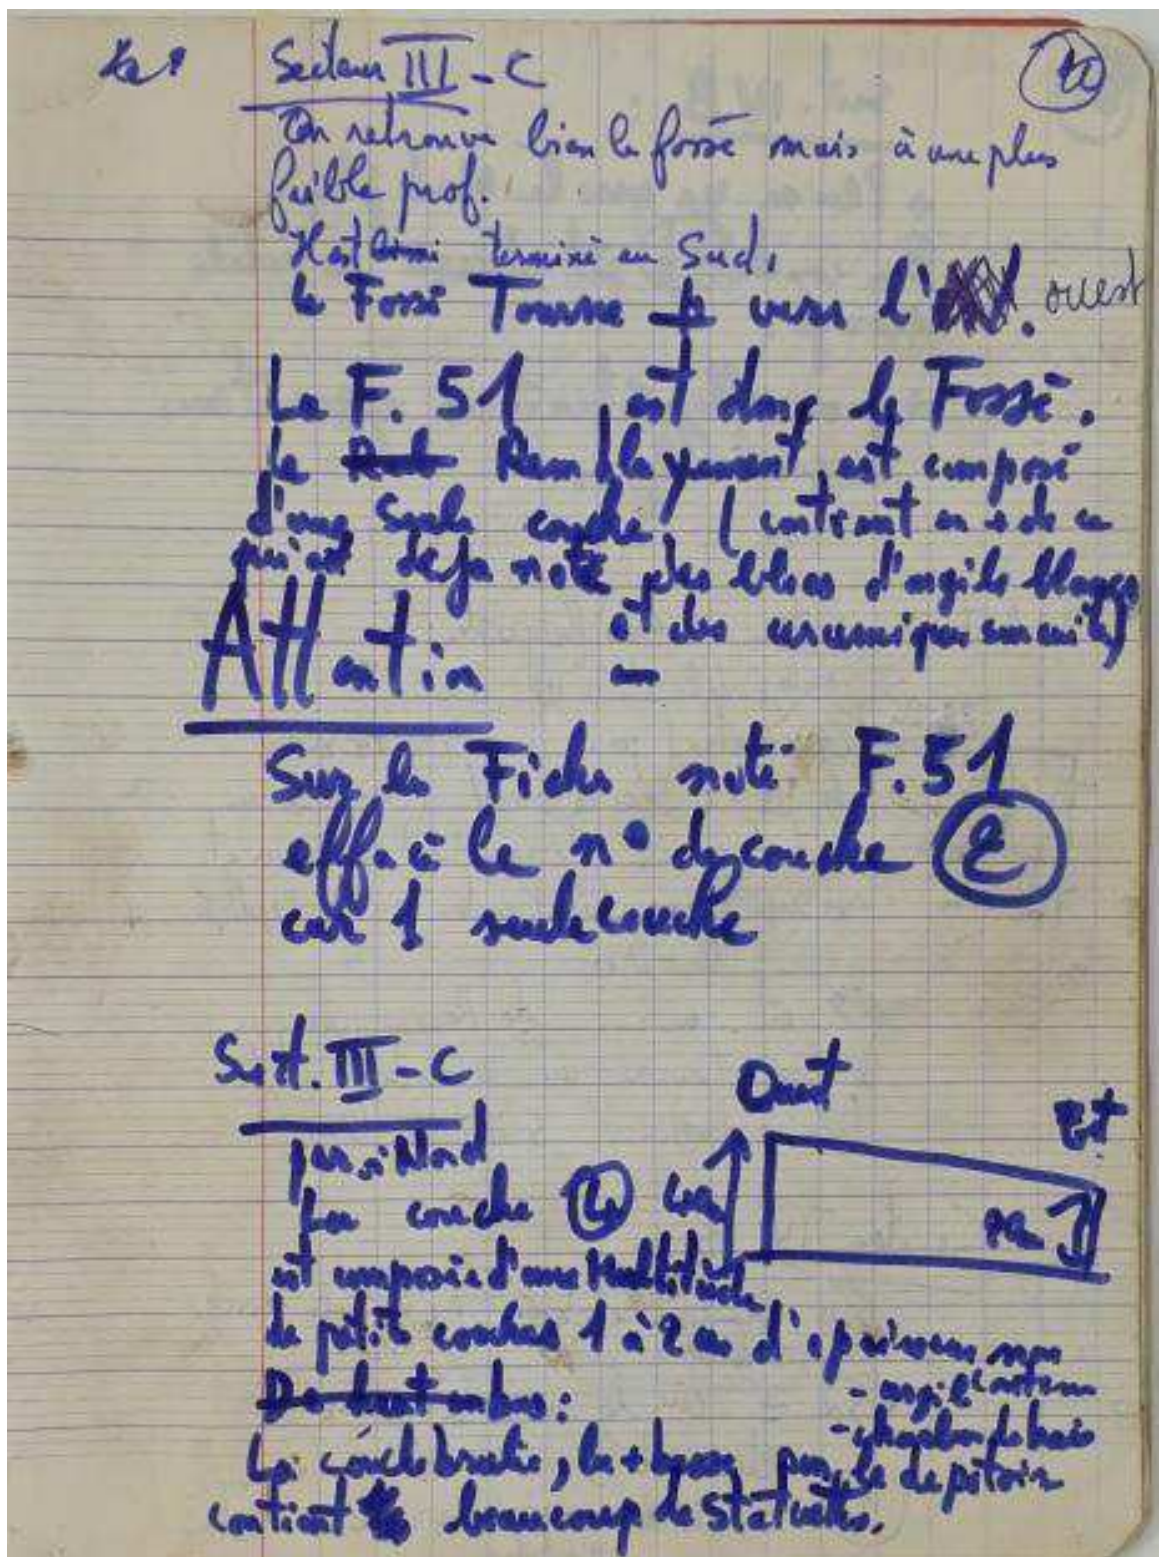 Secteur III - C
On retrouve bien le fossé mais à une plus
faible prof.
terminé au Sud.
le Fossé Tourne vers l' ouest
Le F. 51 est donc le Fossé.
Le Remblayement, est composé
d'une Seule couche. ( contient en + de ce
qui est deja noté des blocs d'argile blanche
et des ceramiques surcuites)
Attention
Sur la Fiche noté F.51
effacé le n° de couche 2
car 1 seule couche
Sect. III - C
Ouest
Est
paroi Nord
La couche 4
est composée d'une Multitude
de petite couches 1 à 2 cm d'épaisseur non
De haut en bas :
- argile
- charbon de bois
La couche , la + basse
contient beaucoup de Statuettes.